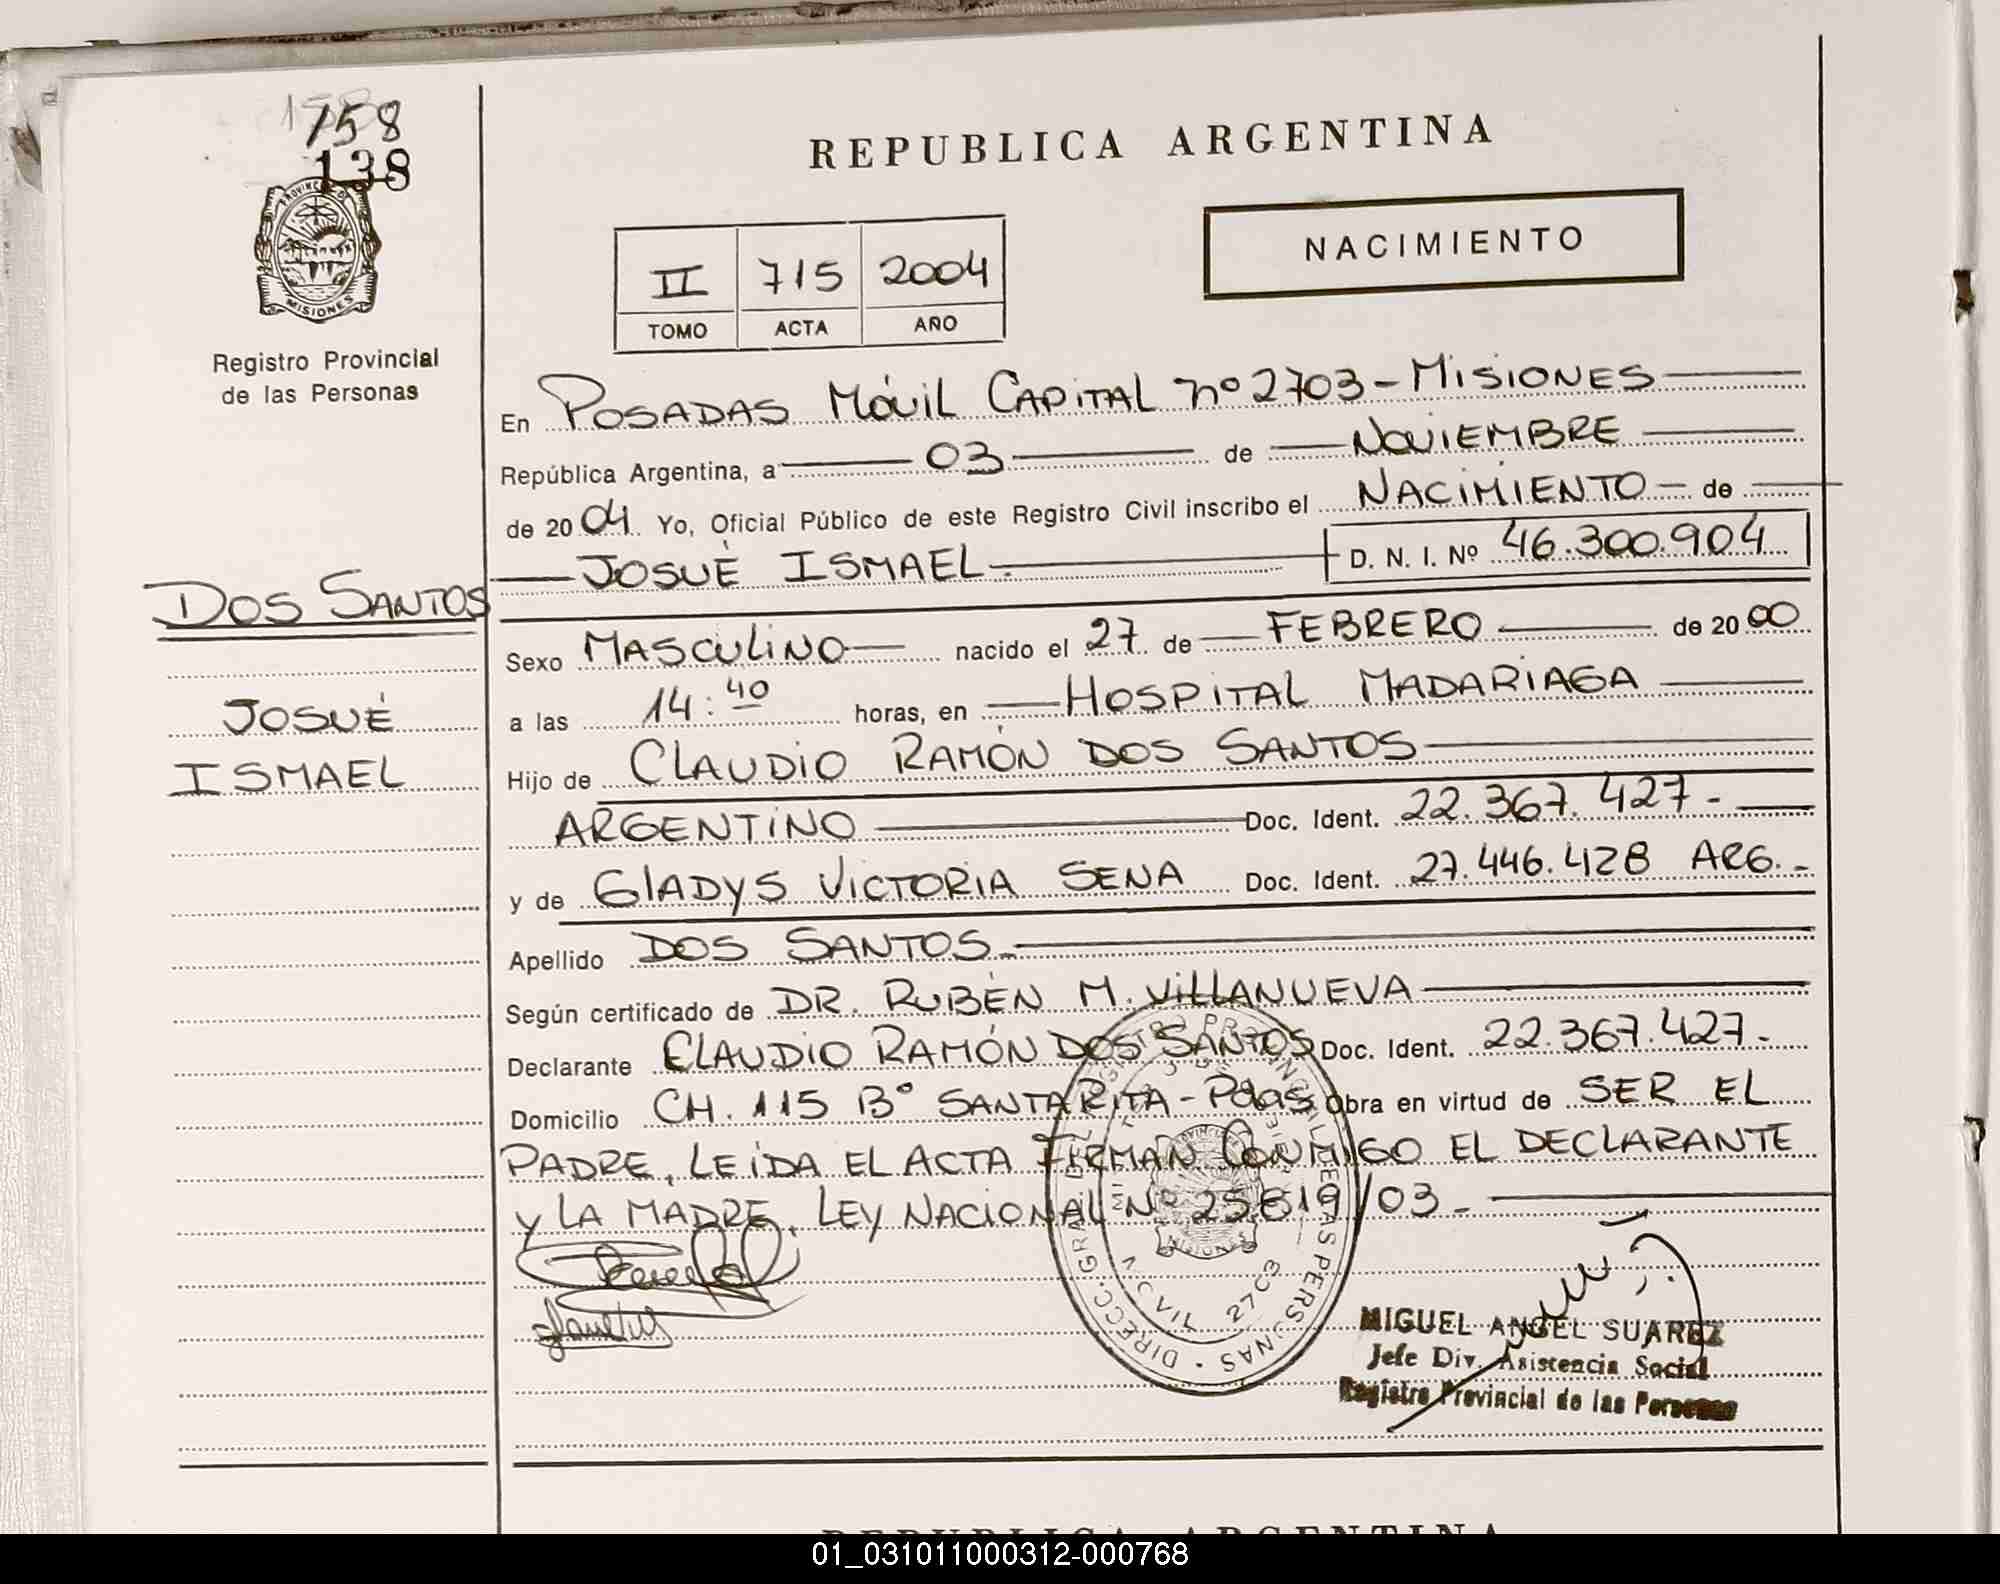 758
138
PROVINCIA DE
MISIONES
Registro Provincial
de las Personas
REPUBLICA ARGENTINA
NACIMIENTO
II 715 2004
TOMO ACTA AÑO
En POSADAS MÓVIL CAPITAL Nº 2703 - MISIONES
República Argentina, a 03 de NOVIEMBRE
de 2004 Yo, Oficial Público de este Registro Civil inscribo el NACIMIENTO de
JOSUÉ ISMAEL. D. N. I. Nº 46.300.904
DOS SANTOS
JOSUÉ
ISMAEL
Sexo MASCULINO nacido el 27 de FEBRERO de 2000
a las 14:40 horas, en HOSPITAL MADARIAGA
Hijo de CLAUDIO RAMÓN DOS SANTOS
ARGENTINO Doc. Ident. 22.367.427.-
y de GLADYS VICTORIA SENA Doc. Ident. 27.446.428 ARG.-
Apellido DOS SANTOS.-
Según certificado de DR. RUBÉN M. VILLANUEVA
Declarante CLAUDIO RAMÓN DOS SANTOS Doc. Ident. 22.367.427.-
Domicilio CH. 115 Bº SANTA RITA - Pdas Obra en virtud de SER EL
PADRE, LEIDA EL ACTA FIRMAN CONMIGO EL DECLARANTE
Y LA MADRE, LEY NACIONAL Nº 25819/03.-
DIRECC. GRAL. DEL REGISTRO PROVINCIAL DE LAS PERSONAS
MOVIL 2703
MISIONES
MIGUEL ANGEL SUAREZ
Jefe Div. Asistencia Social
Registro Provincial de las Personas
REPUBLICA ARGENTINA
01_031011000312-000768